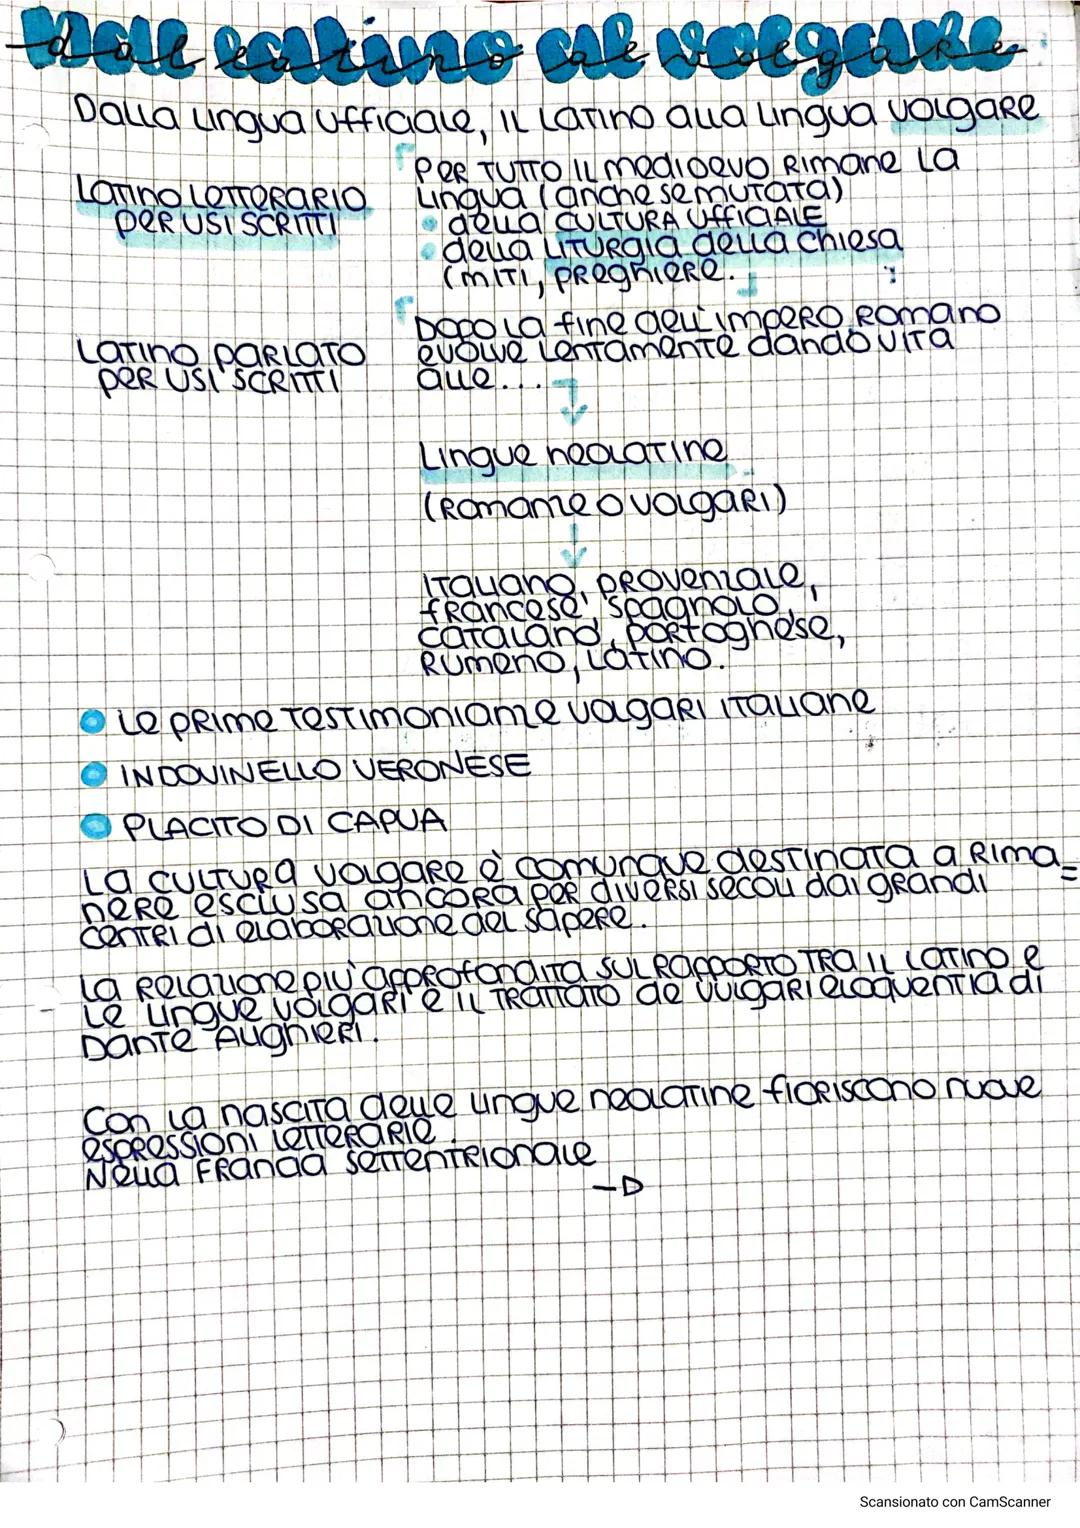 dal latino al volgare
Dalla lingua ufficiale, il latino alla lingua volgare
Latino letterario
per usi scritti
Per tutto il medioevo rimane la
lingua (anche se mutata)
della cultura ufficiale
della liturgia della chiesa
(miti, preghiere.
Latino parlato
per usi scritti
Dopo la fine dell'impero romano
evolve lentamente dando vita
alle...
Lingue neolatine
(Romanze o volgari)
Italiano, provenzale,
francese, spagnolo,
catalano, portoghese,
rumeno, latino.
Le prime testimonianze volgari italiane
INDOVINELLO VERONESE
PLACITO DI CAPUA
La cultura volgare è comunque destinata a rima=
nere esclusa ancora per diversi secoli dai grandi
centri di elaborazione del sapere.
La relazione più approfondita sul rapporto tra il latino e
le lingue volgari è il trattato de vulgari eloquentia di
Dante Alighieri.
Con la nascita delle lingue neolatine fioriscono nuove
espressioni letterarie.
Nella Francia settentrionale
Scansionato con CamScanner